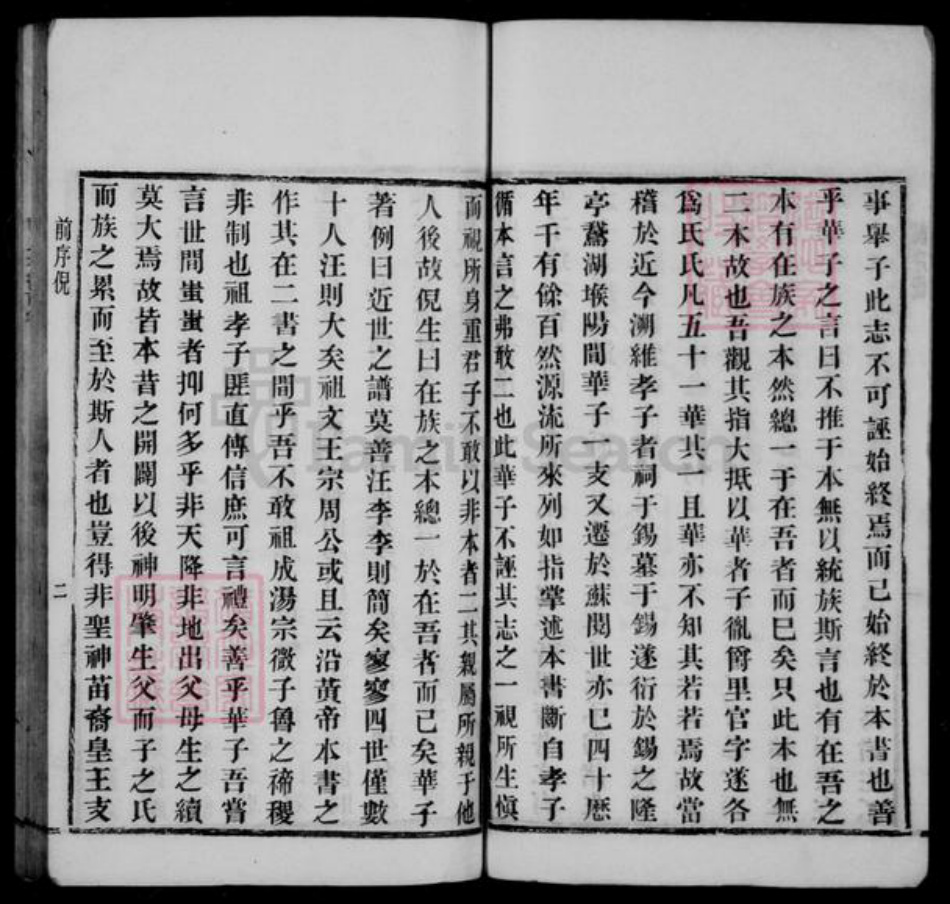 事舉子此志不可誣始終焉而已始終於本書也善
乎華子之言曰不推于本無以統族斯言也有在吾之
本有在族之本然總一于在吾者而巳矣只此本也無
二本故也吾觀其指大抵以華者子氏爵里官字遂各
爲氏氏凡五十一華其一且華亦不知其若若焉故當
稽於近今溯維孝子者祠于錫墓于錫遂衍於錫之隆
亭鵞湖堠陽間華子一支又遷於蘇閱世亦巳四十歷
年千有餘百然源流所來列如指掌述本書斷自孝子
循本言之弗敢二也此華子不誣其志之一視所生愼
而視所身重君子不敢以非本者二其親屬所親于他
人後故倪生曰在族之本總一於在吾者而已矣華子
著例曰近世之譜莫善汪李李則簡矣寥寥四世僅數
十人汪則大矣祖文王宗周公或且云沿黃帝本書之
作其在二書之間乎吾不敢祖成湯宗微子魯之禘稷
非制也祖孝子匪直傳信庶可言禮矣善乎華子吾嘗
言世間蚩蚩者抑何多乎非天降非地出父母生之續
莫大焉故皆本昔之開闢以後神明肇生父而子之氏
而族之累而至於斯人者也豈得非聖神苗裔皇王支
前序倪
二
iLamiaSearch